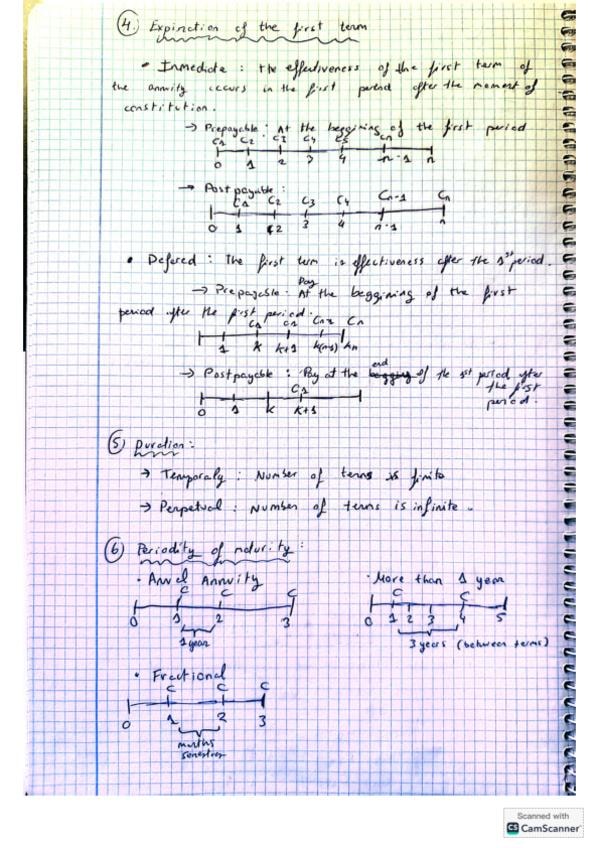 4. Expiration of the first term
• Inmediate : the effectiveness of the first term of
the annuity occurs in the first period after the moment of
constitution.
→ Prepayable : At the beggining of the first period
C1 C2 C3 C4 C5 Cn
0 1 2 3 4 n-1 n
→ Postpayable :
C1 C2 C3 C4 Cn-1 Cn
0 1 2 3 4 n-1 n
• Defered : The first term is effectiveness after the 1st period.
Pay
→ Prepayable : At the beggining of the first
period after the first period.
C1 Cn
1 K K+1
→ Postpayable : Pay at the end of the 1st period after
the first
period.
C1
0 1 K K+1
5 Duration :
→ Temporaly : Number of terms is finite
→ Perpetual : Number of terms is infinite.
6 Periodity of maturity :
• Anual Annuity
C C C
0 1 2 3
1 year
• More than 1 year
C C
0 1 2 3 4 5
3 years (between terms)
• Fractional
C C C
0 1 2 3
months
semestres
Scanned with
CS CamScanner